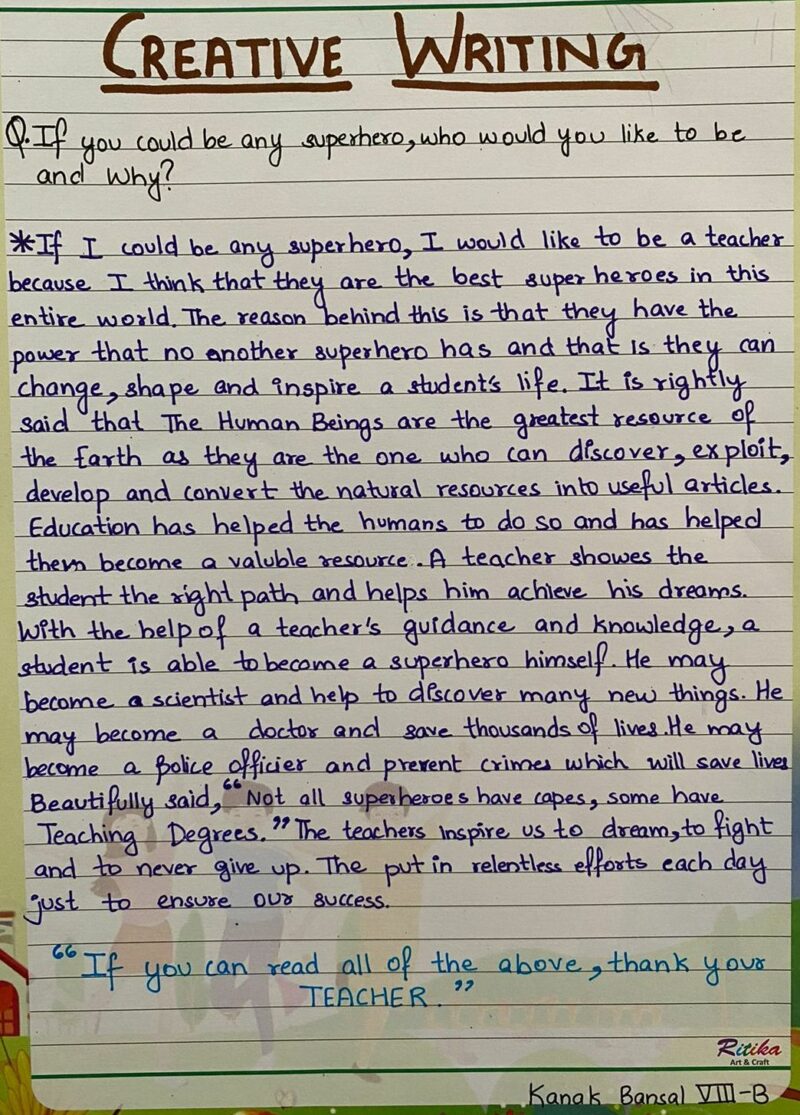 CREATIVE WRITING
Q. If you could be any superhero, who would you like to be
and why?
*If I could be any superhero, I would like to be a teacher
because I think that they are the best super heroes in this
entire world. The reason behind this is that they have the
power that no another superhero has and that is they can
change, shape and inspire a student's life. It is rightly
said that The Human Beings are the greatest resource of
the Earth as they are the one who can discover, exploit,
develop and convert the natural resources into useful articles.
Education has helped the humans to do so and has helped
them become a valuble resource. A teacher showes the
student the right path and helps him achieve his dreams.
With the help of a teacher's guidance and knowledge, a
student is able to become a superhero himself. He may
become a scientist and help to discover many new things. He
may become a doctor and save thousands of lives. He may
become a police officier and prevent crimes which will save lives
Beautifully said, “Not all superheroes have capes, some have
Teaching Degrees.” The teachers inspire us to dream, to fight
and to never give up. The put in relentless efforts each day
just to ensure our success.
“If you can read all of the above, thank your
TEACHER.”
Ritika
Art & Craft
Kanak Bansal VIII-B